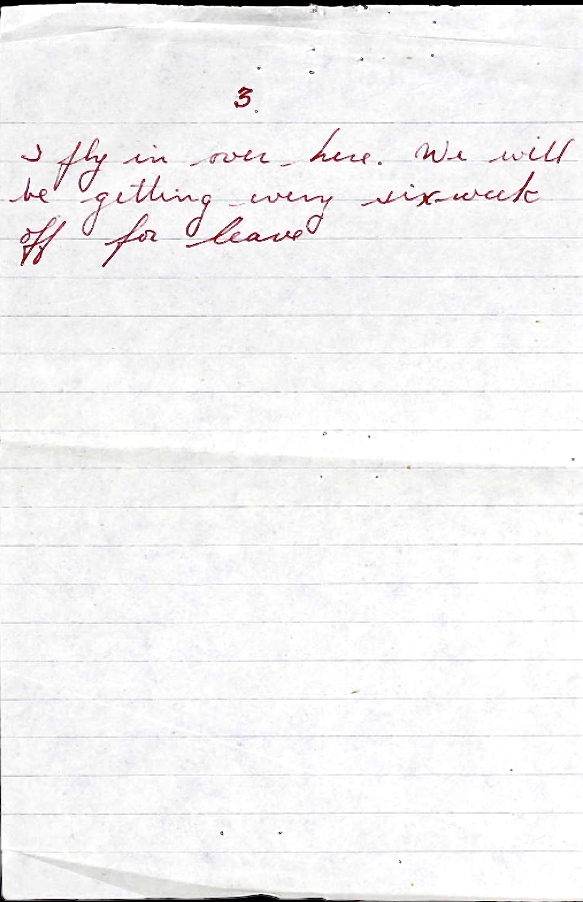 3.
I fly in over here. We will
be getting every six week
off for leave